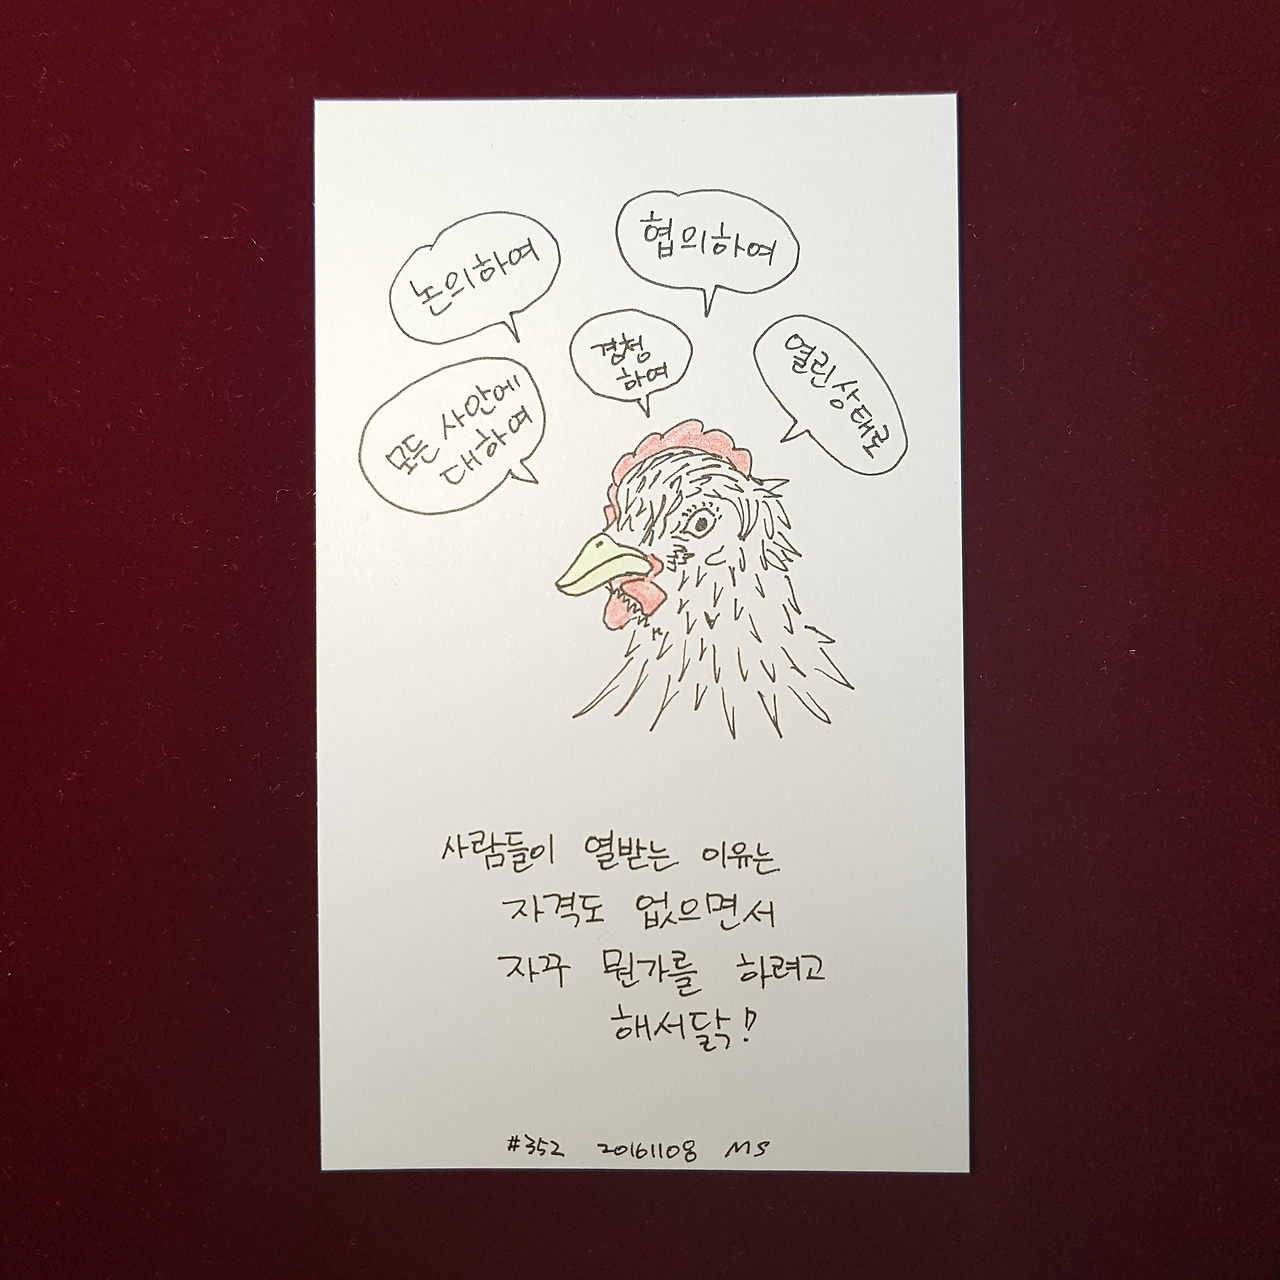 논의하여
협의하여
경청
하여
열린상태로
모든 사안에
대하여
사람들이 열받는 이유는
자격도 없으면서
자꾸 뭔가를 하려고
해서닭!
#352 20161108 MS